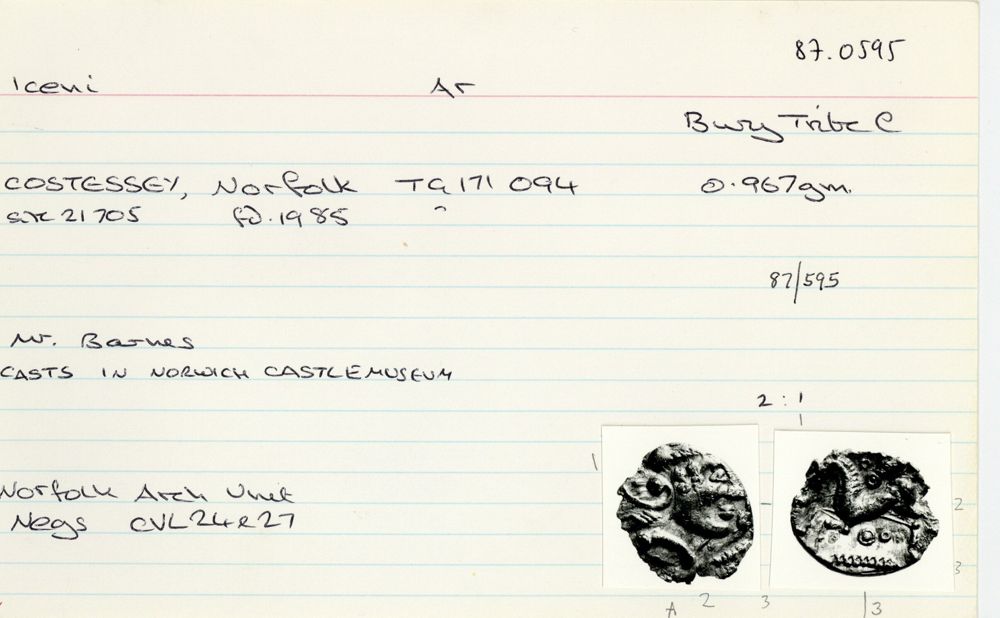 87.0595
Iceni Ar
Bury Tribe C
COSTESSEY, Norfolk TG 171 094 0.967gm.
site 21705 fd. 1985
87/595
Mr. Barnes
CASTS IN NORWICH CASTLE MUSEUM
2:1
Norfolk Arch Unit
Negs CVL 24 & 27
2
3
A 2 3 3